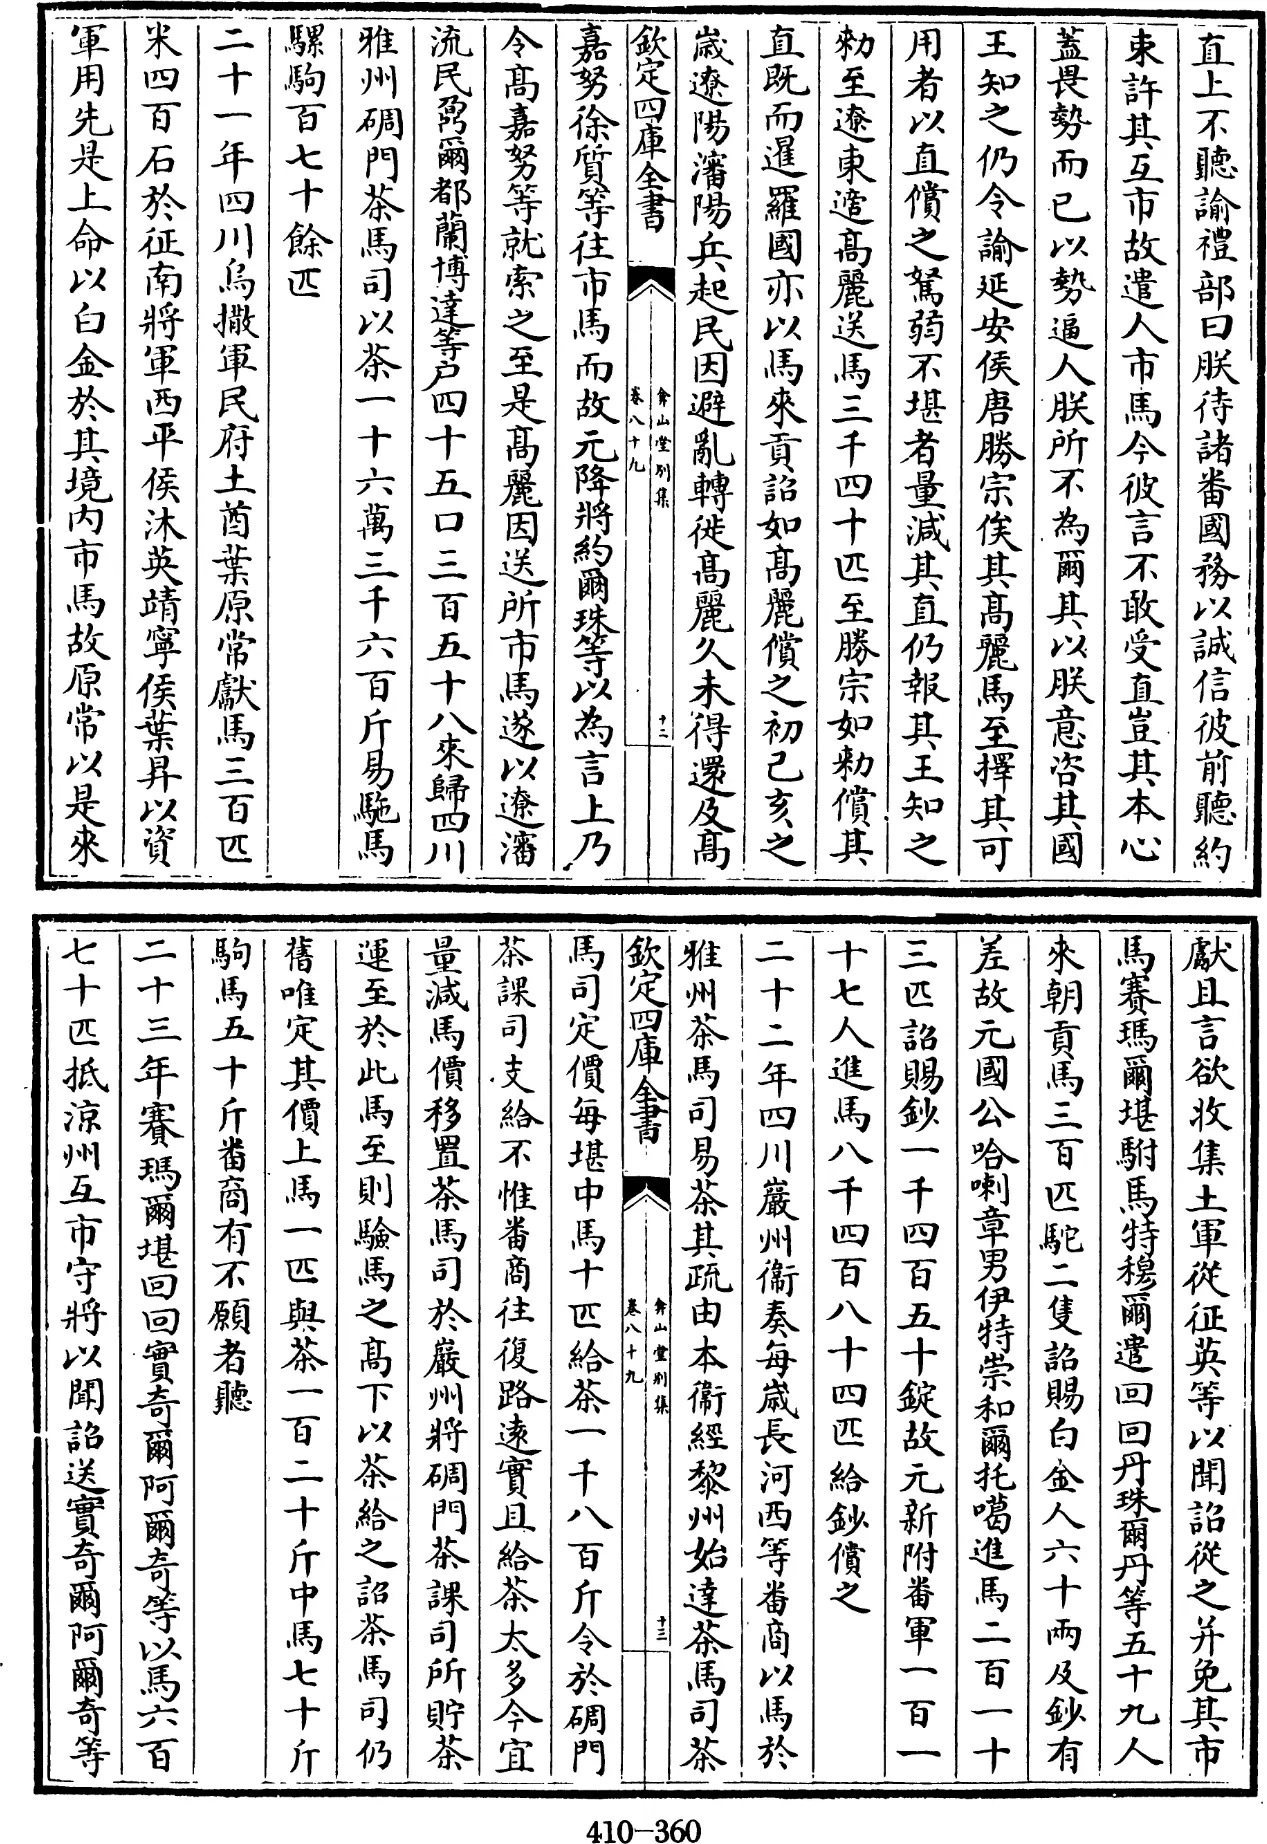 直上不聽諭禮部曰朕待諸番國務以誠信彼前聽約
束許其互市故遣人市馬今彼言不敢受直豈其本心
葢畏勢而已以勢逼人朕所不為爾其以朕意咨其國
王知之仍令諭延安侯唐勝宗俟其髙麗馬至擇其可
用者以直償之駑弱不堪者量減其直仍報其王知之
勅至遼東適髙麗送馬三千四十匹至勝宗如勅償其
直既而暹羅國亦以馬來貢詔如髙麗償之初己亥之
歲遼陽瀋陽兵起民因避亂轉徙髙麗久未得還及髙
欽定四庫全書
弇山堂别集
卷八十九
十二
嘉努徐質等往市馬而故元降將約爾珠等以為言上乃
令髙嘉努等就索之至是髙麗因送所市馬遂以遼瀋
流民鼐爾都蘭博達等户四十五口三百五十八來歸四川
雅州碉門茶馬司以茶一十六萬三千六百斤易駞馬
騾駒百七十餘匹
二十一年四川烏撒軍民府土酋葉原常獻馬三百匹
米四百石於征南將軍西平侯沐英靖寧侯葉昇以資
軍用先是上命以白金於其境内市馬故原常以是來
獻且言欲收集土軍從征英等以聞詔從之并免其市
馬賽瑪爾堪駙馬特穆爾遣回回丹珠爾丹等五十九人
來朝貢馬三百匹駝二隻詔賜白金人六十兩及鈔有
差故元國公哈喇章男伊特崇和爾托噶進馬二百一十
三匹詔賜鈔一千四百五十錠故元新附番軍一百一
十七人進馬八千四百八十四匹給鈔償之
二十二年四川巖州衞奏每歲長河西等番商以馬於
雅州茶馬司易茶其疏由本衞經黎州始達茶馬司茶
欽定四庫全書
弇山堂别集
卷八十九
十三
馬司定價每堪中馬十匹給茶一千八百斤令於碉門
茶課司支給不惟番商往復路遠實且給茶太多今宜
量減馬價移置茶馬司於巖州將碉門茶課司所貯茶
運至於此馬至則驗馬之髙下以茶給之詔茶馬司仍
舊唯定其價上馬一匹與茶一百二十斤中馬七十斤
駒馬五十斤番商有不願者聽
二十三年賽瑪爾堪回回實奇爾阿爾奇等以馬六百
七十匹抵涼州互市守將以聞詔送實奇爾阿爾奇等
410-360